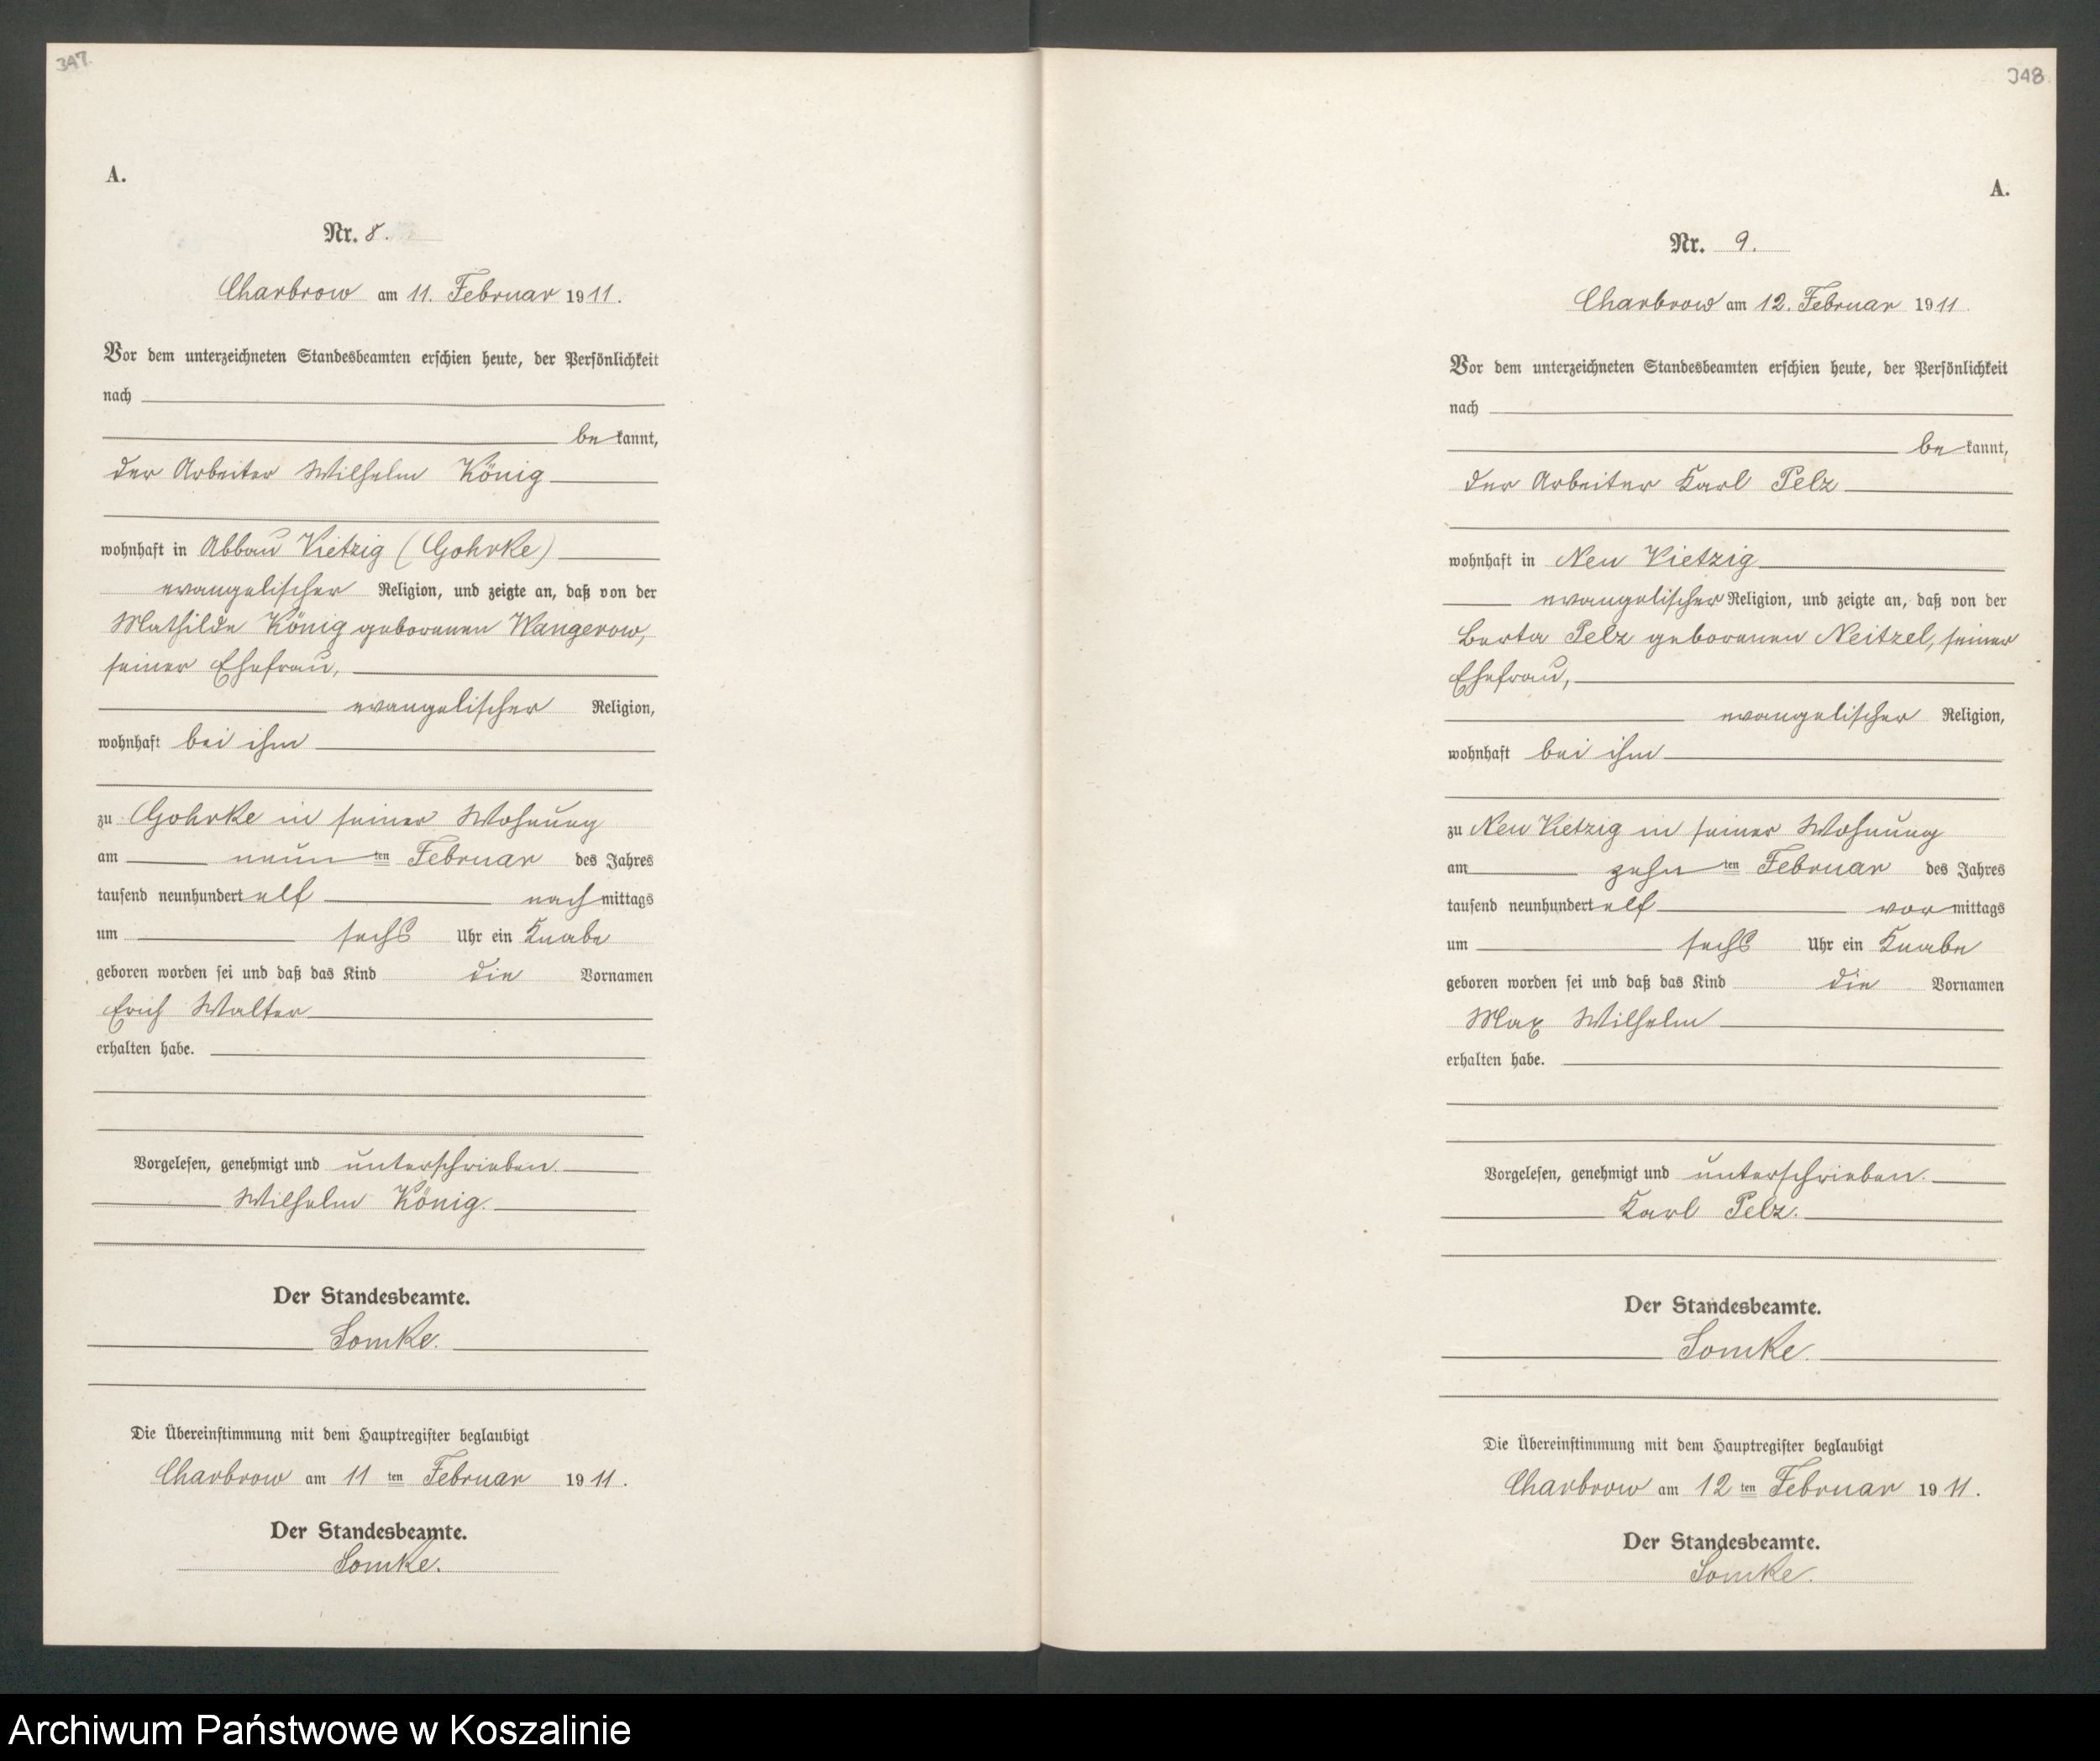 347.
A.
Nr. 8.
Charbrow am 11. Februar 1911.
Vor dem unterzeichneten Standesbeamten erschien heute, der Persönlichkeit
nach
be kannt,
der Arbeiter Wilhelm König
wohnhaft in Abbau Vietzig (Gohrke)
evangelischer Religion, und zeigte an, daß von der
Mathilde König geborenen Wangerow,
seiner Ehefrau,
evangelischer Religion,
wohnhaft bei ihm
zu Gohrke in seiner Wohnung
am neun ten Februar des Jahres
tausend neunhundert elf nach mittags
um sechs Uhr ein Knabe
geboren worden sei und daß das Kind die Vornamen
Erich Walter
erhalten habe.
Vorgelesen, genehmigt und unterschrieben.
Wilhelm König.
Der Standesbeamte.
Somke.
Die Übereinstimmung mit dem Hauptregister beglaubigt
Charbrow am 11 ten Februar 1911.
Der Standesbeamte.
Somke.
348.
A.
Nr. 9.
Charbrow am 12. Februar 1911.
Vor dem unterzeichneten Standesbeamten erschien heute, der Persönlichkeit
nach
be kannt,
der Arbeiter Karl Pelz
wohnhaft in Neu Vietzig
evangelischer Religion, und zeigte an, daß von der
Berta Pelz geborenen Neitzel, seiner
Ehefrau,
evangelischer Religion,
wohnhaft bei ihm
zu Neu Vietzig in seiner Wohnung
am zehn ten Februar des Jahres
tausend neunhundert elf vor mittags
um sechs Uhr ein Knabe
geboren worden sei und daß das Kind die Vornamen
Max Wilhelm
erhalten habe.
Vorgelesen, genehmigt und unterschrieben.
Karl Pelz.
Der Standesbeamte.
Somke.
Die Übereinstimmung mit dem Hauptregister beglaubigt
Charbrow am 12 ten Februar 1911.
Der Standesbeamte.
Somke.
Archiwum Państwowe w Koszalinie